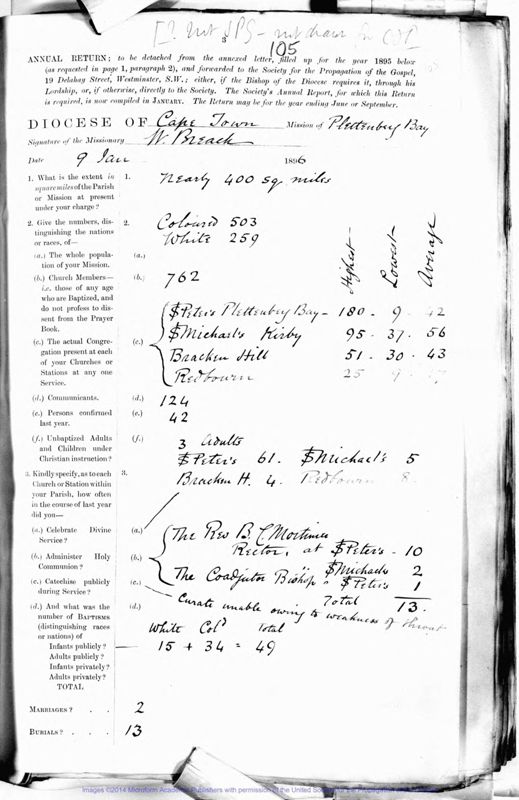 [? not SPG - not
105
ANNUAL RETURN; to be detached from the annexed letter, filled up for the year 1895 below
(as requested in page 1, paragraph 2), and forwarded to the Society for the Propagation of the Gospel,
19 Delahay Street, Westminster, S.W.; either, if the Bishop of the Diocese requires it, through his
Lordship, or, if otherwise, directly to the Society. The Society's Annual Report, for which this Return
is required, is now compiled in JANUARY. The Return may be for the year ending June or September.
DIOCESE OF Cape Town Mission of Plettenberg Bay
Signature of the Missionary W. Breach
Date 9 Jan 1896
1. What is the extent in
square miles of the Parish
or Mission at present
under your charge?
1. Nearly 400 sq miles
2. Give the numbers, distinguishing
the nations
or races, of—
2. Coloured 503
White 259
(a.) The whole population
of your Mission.
(a.)
(b.) Church Members—
i.e. those of any age
who are Baptized, and
do not profess to dissent
from the Prayer
Book.
(b.) 762
Highest - Lowest - Average
(c.) The actual Congregation
present at each
of your Churches or
Stations at any one
Service.
(c.) St Peter's Plettenberg Bay - 180 - 9 - 42
St Michael's Kirby 95 - 37 - 56
Bracken Hill 51 - 30 - 43
Redbourn 25 - 9 - 17
(d.) Communicants. (d.) 124
(e.) Persons confirmed
last year.
(e.) 42
(f.) Unbaptized Adults
and Children under
Christian instruction?
(f.) 3 Adults
St Peter's 61. St Michael's 5
Bracken H. 4. Redbourn 8.
3. Kindly specify, as to each
Church or Station within
your Parish, how often
in the course of last year
did you—
3.
(a.) Celebrate Divine
Service?
(a.)
(b.) Administer Holy
Communion?
(b.) The Rev B. C Mortimer
Rector, at St Peter's - 10
" " St Michaels 2
The Coadjutor Bishop " St Peter's 1
Total 13.
(c.) Catechise publicly
during Service?
(c.) Curate unable owing to weakness of throat
(d.) And what was the
number of BAPTISMS
(distinguishing races
or nations) of
(d.)
White Cold Total
Infants publicly? 15 + 34 = 49
Adults publicly?
Infants privately?
Adults privately?
TOTAL
MARRIAGES? . . 2
BURIALS? . . . 13
Images ©2014 Microform Academic Publishers with permission of the United Society for the Propagation of the Gospel